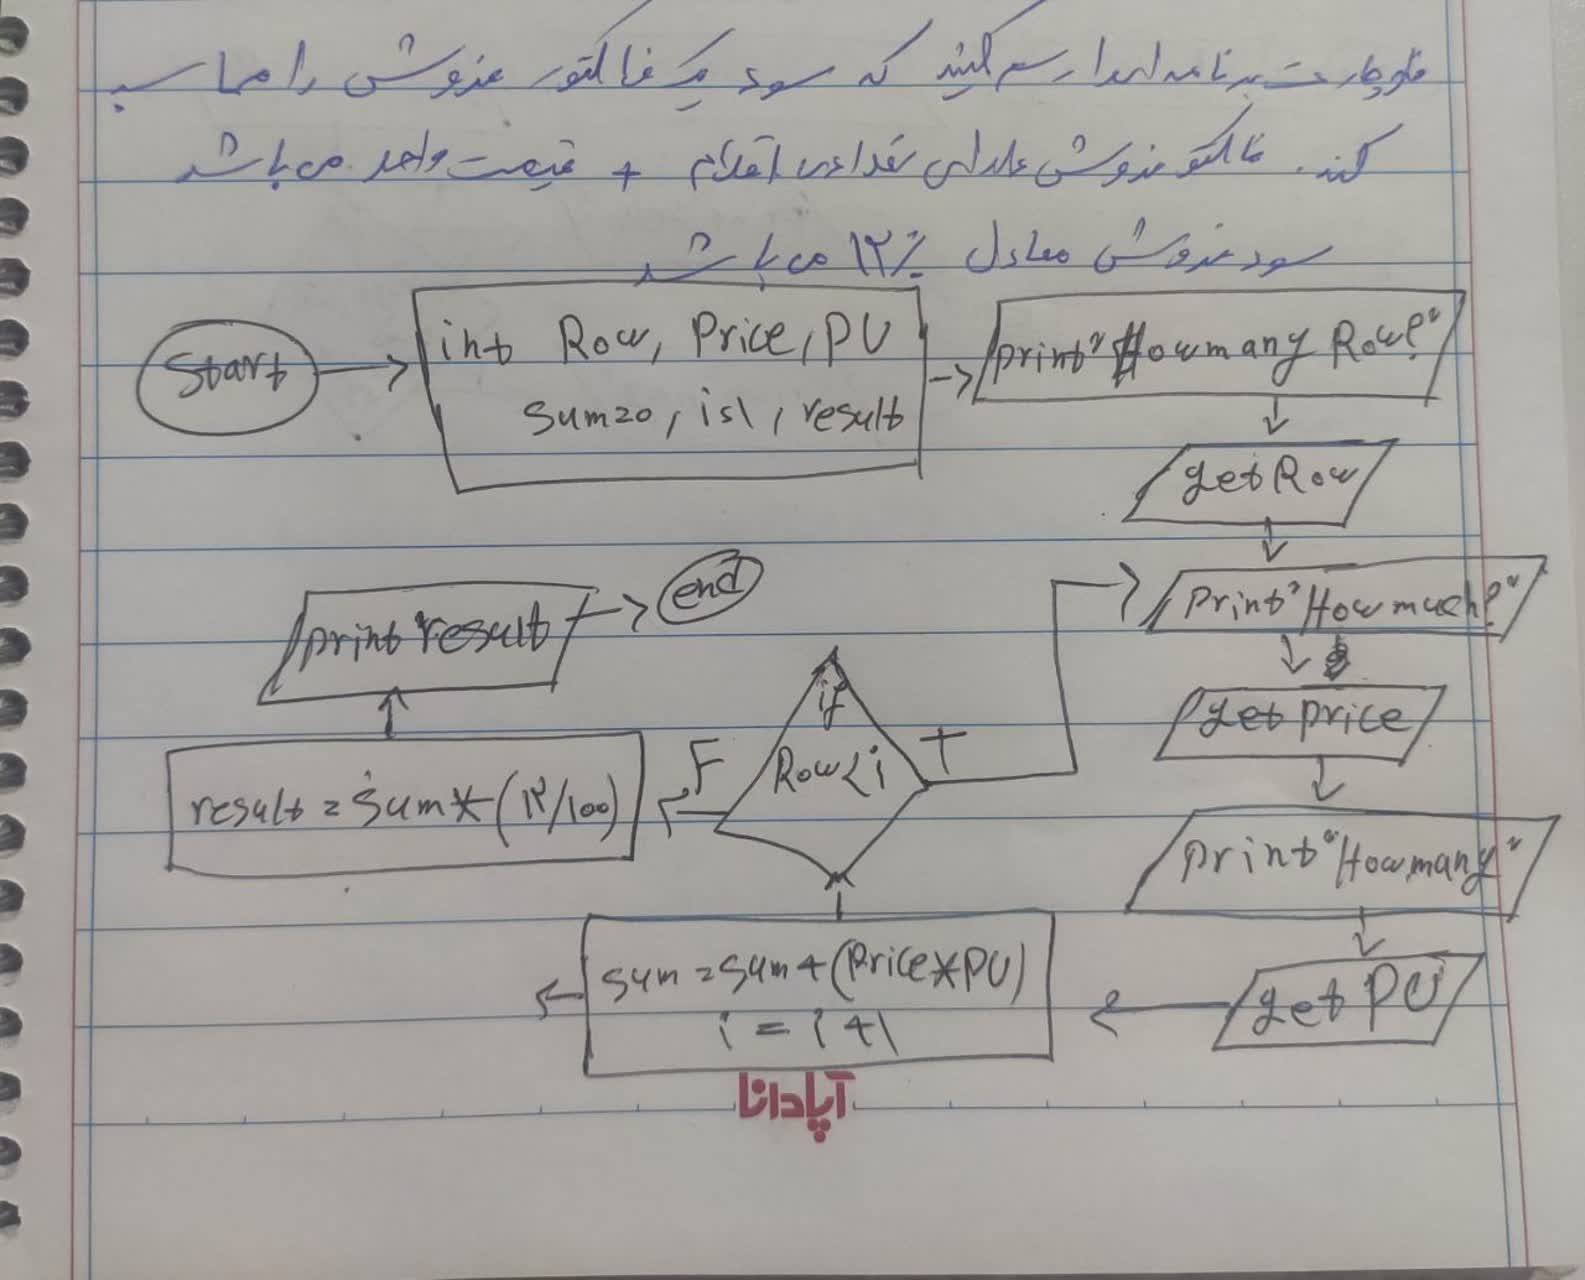 فلوچارت برنامه ای را رسم کنید که سود یک فاکتور فروش را محاسبه
کند. فاکتور فروش دارای تعدادی اقلام + قیمت واحد می باشد
سود فروش معادل ۱۲٪ می باشد
Start
int Row, Price, PU
sum=0, i=1, result
print "How many Row?"
get Row
print "How much?"
get price
print "How many"
get PU
sum = sum + (Price * PU)
i = i + 1
if
Row < i
T
F
result = sum * (12/100)
print result
end
آپادانا